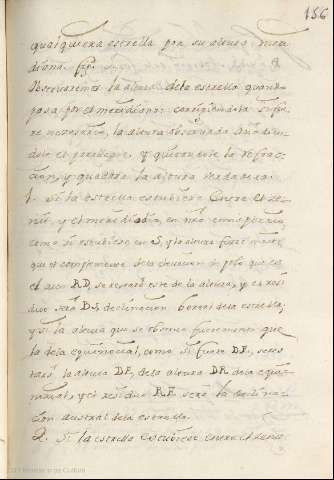 156
qualquiera estrella por su altura meri
diana.
Observaremos la altura dela estrella quando
pasa por el meridiano: corrigiendola si fue
re necesario, la altura observada
dole el paralage, y quitandole la refrac
cion, y quedara la altura verdadera
1. Si la estrella estubiere entre el ze
nit, y el mero
como si estubiese en S, y la altura fuere mayor
que el complemento dela elevacion de polo que es
el arco RD, se restará este de la altura, y el resi
duo será DS, declinacion boreal dela estrella,
y si la altura que se observa fuere menor que
la dela equinocial, como si fuere DF, seres
tará la altura DF, dela altura DR dela equi
nocial, y el residuo RF será la declina
cion austral dela estrella.
2. Si la estrella estubiese entre el zenit